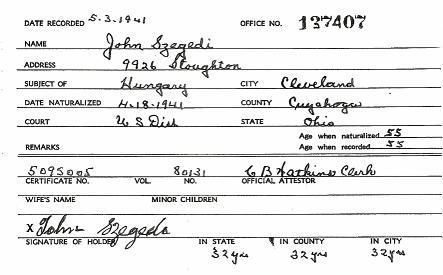 DATE RECORDED 5-3-1941 OFFICE NO. 137407
NAME John Szegedi
ADDRESS 9926 Stoughton
SUBJECT OF Hungary CITY Cleveland
DATE NATURALIZED 4-18-1941 COUNTY Cuyahoga
COURT U S Dist STATE Ohio
Age when naturalized 55
REMARKS Age when recorded 55
5095005 80131 C B Watkins Clerk
CERTIFICATE NO. VOL. NO. OFFICIAL ATTESTOR
WIFE'S NAME MINOR CHILDREN
X John Szegedi
SIGNATURE OF HOLDER IN STATE IN COUNTY IN CITY
32 yrs 32 yrs 32 yrs